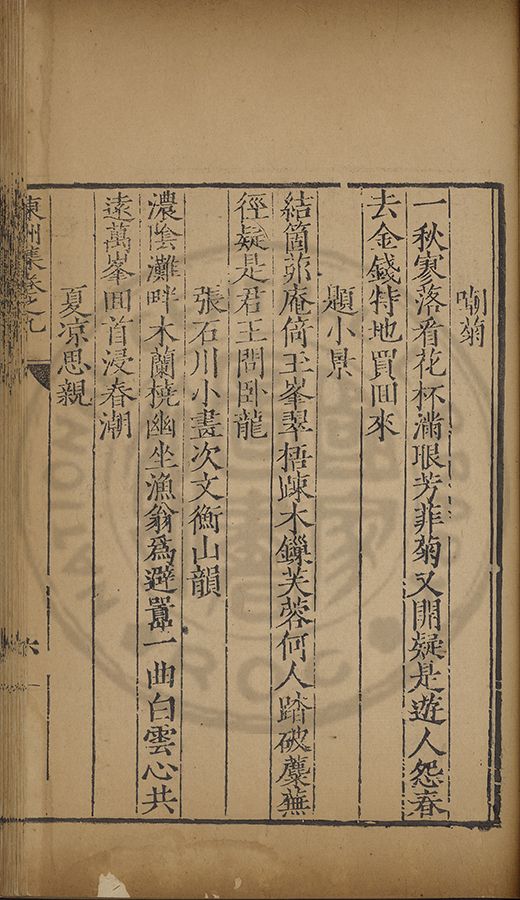 嘲菊
一秋寥落看花杯滿眼芳菲菊又開疑是遊人怨春
去金錢特地買囬來
題小景
結箇茆庵倚玉峯翠梧踈木鏁芙蓉何人踏破蘼蕪
徑疑是君王問卧龍
張石川小畫次文衡山韻
濃陰灘畔木蘭橈幽坐漁翁爲避囂一曲白雲心共
遠萬峯囬首浸春潮
夏凉思親
東洲集卷之九
六